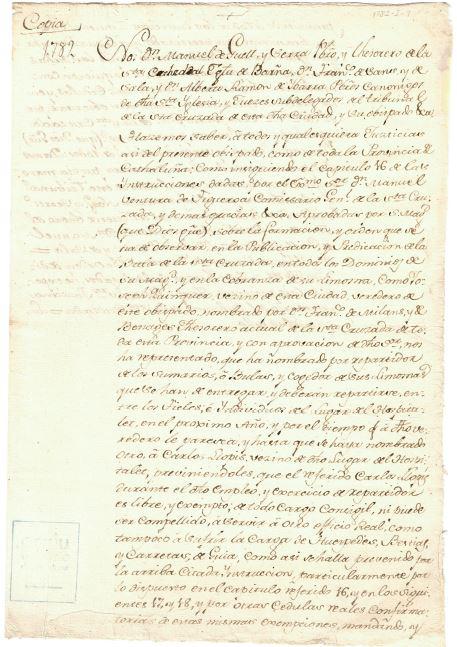 Copia
1782
Nos Dn. Manuel de Guell, y Serra Pbro, y thesorero de la
Sta Cathedral Igla de Barna, Dn. Franco. de Sans, y de
Sala, y Dn. Ramon de Ibarra Pbros Canonigos
de dha Sta Iglesia, y Juezes subdelegados, del tribunal
de la Sta Cruzada de esta dha Ciudad, y su obispado &a
Hazemos saber, à todos, y qualesquiera Justicias
asi del presente obispado, como de toda la Provincia de
Cathaluña: Como insiguiendo el Capitulo 16 de las
instrucciones dadas, por el Exmo Sor. Dn. Manuel
Ventura de Figueroa Comissario Genl. de la Sta Cru-
zada, y demas gracias &a. Aprobadas por S. Magd
(que Dios gue) sobre la formacion, y orden que se
ha de observar, en la Publicacion, y Predicacion de la
Bula de la Sta Cruzada, en todos los Dominios de
su Magd. y en la Cobranza de su limosna, Como Jo-
seph Quinquer, vezino de esta Ciudad, veredero de
este obispado, nombrado por Dn. Franco. de Milans, y de
Benages thesorero actual de la Sta Cruzada de to-
da esta Provincia, y con aprovacion de dho Sor, nos
ha representado, que ha nombrado por repartidor
de los sumarios, ò Bulas, y Cogedor de sus limosnas
que se han de entregar, y deberan repartirse, en-
tre los Fieles, è individuos del Lugar del Hospita-
let, en el proximo Año, y por el tiempo q à dho ve-
redero le paresca, y hasta que se haya nombrado
otro, à Carlos Llopis, vezino de dho Lugar del Hospi-
talet, previniendoles, que el referido Carlos Llopis
durante el dho Empleo, y exercicio de repartidor
es libre, y exempto, de todo Cargo Concegil, ni puede
ser Compellido, a servir à otro officio Real, como
tampoco à sufrir la Carga de Huespedes, Bestias,
y Carretas, de Guia, como asi se halla prevenido por
la arriba Citada instruccion, particularmente por
lo dispuesto en el Capitulo referido 16, y en los sigui-
entes 17, y 18, y por otras Cedulas reales Confirma-
torias de essas mismas exempciones, mandando, y